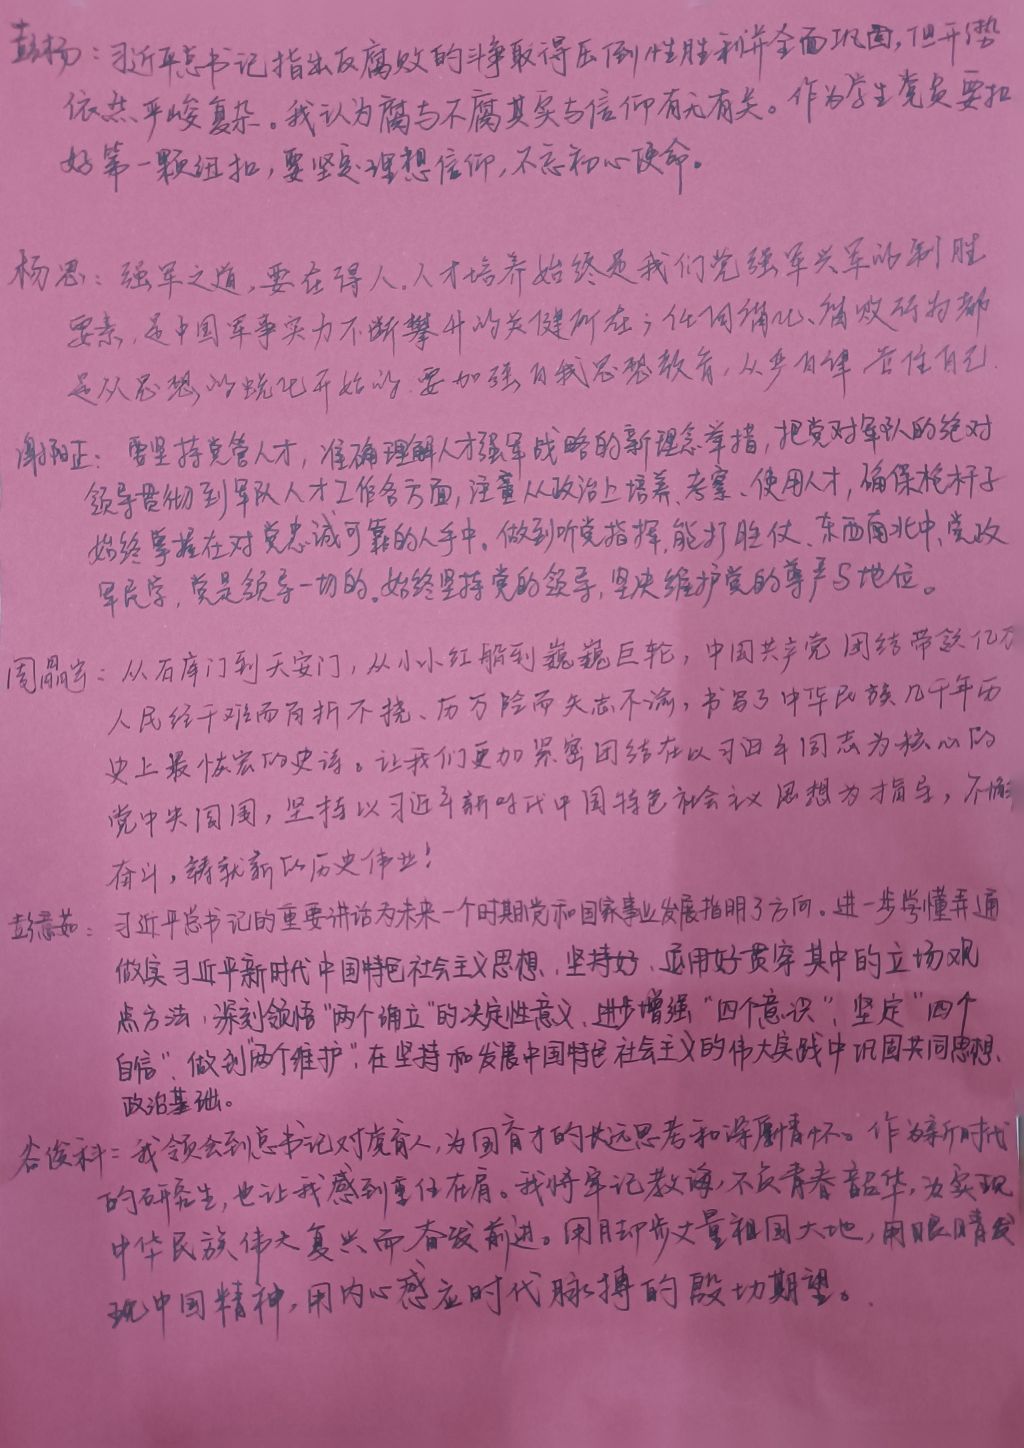 彭杨：习近平总书记指出反腐败的斗争取得压倒性胜利并全面巩固，但形势
依然严峻复杂。我认为腐与不腐其实与信仰有无有关。作为学生党员要扣
好第一颗纽扣，要坚定理想信仰，不忘初心使命。
杨思：强军之道，要在得人。人才培养始终是我们党强军兴军的制胜
要素，是中国军事实力不断攀升的关键所在；任何腐化、腐败行为都
是从思想的蜕化开始的.要加强自我思想教育，从严自律 管住自己.
谢阳正：要坚持党管人才，准确理解人才强军战略的新理念举措，把党对军队的绝对
领导贯彻到军队人才工作各方面，注重从政治上培养、考察、使用人才，确保枪杆子
始终掌握在对党忠诚可靠的人手中。做到听党指挥，能打胜仗、东西南北中，党政
军民学，党是领导一切的。始终坚持党的领导，坚决维护党的尊严与地位。
周晶宇：从石库门到天安门，从小小红船到巍巍巨轮，中国共产党团结带领亿万
人民经千难而百折不挠、历万险而矢志不渝，书写了中华民族几千年历
史上最恢宏的史诗。让我们更加紧密团结在以习近平同志为核心的
党中央周围，坚持以习近平新时代中国特色社会主义思想为指导，不懈
奋斗，铸就新的历史伟业！
彭意茹：习近平总书记的重要讲话为未来一个时期党和国家事业发展指明了方向。进一步学懂弄通
做实习近平新时代中国特色社会主义思想、坚持好、运用好贯穿其中的立场观
点方法，深刻领悟“两个确立”的决定性意义、进步增强“四个意识”、坚定“四个
自信”、做到“两个维护”，在坚持和发展中国特色社会主义的伟大实践中巩固共同思想、
政治基础。
谷俊科：我领会到总书记对虔育人，为国育才的长远思考和深厚情怀。作为新时代
的研究生，也让我感到重任在肩。我将牢记教诲，不负青春韶华，为实现
中华民族伟大复兴而奋发前进。用脚步丈量祖国大地，用眼睛发
现中国精神，用内心感应时代脉搏的殷切期望。